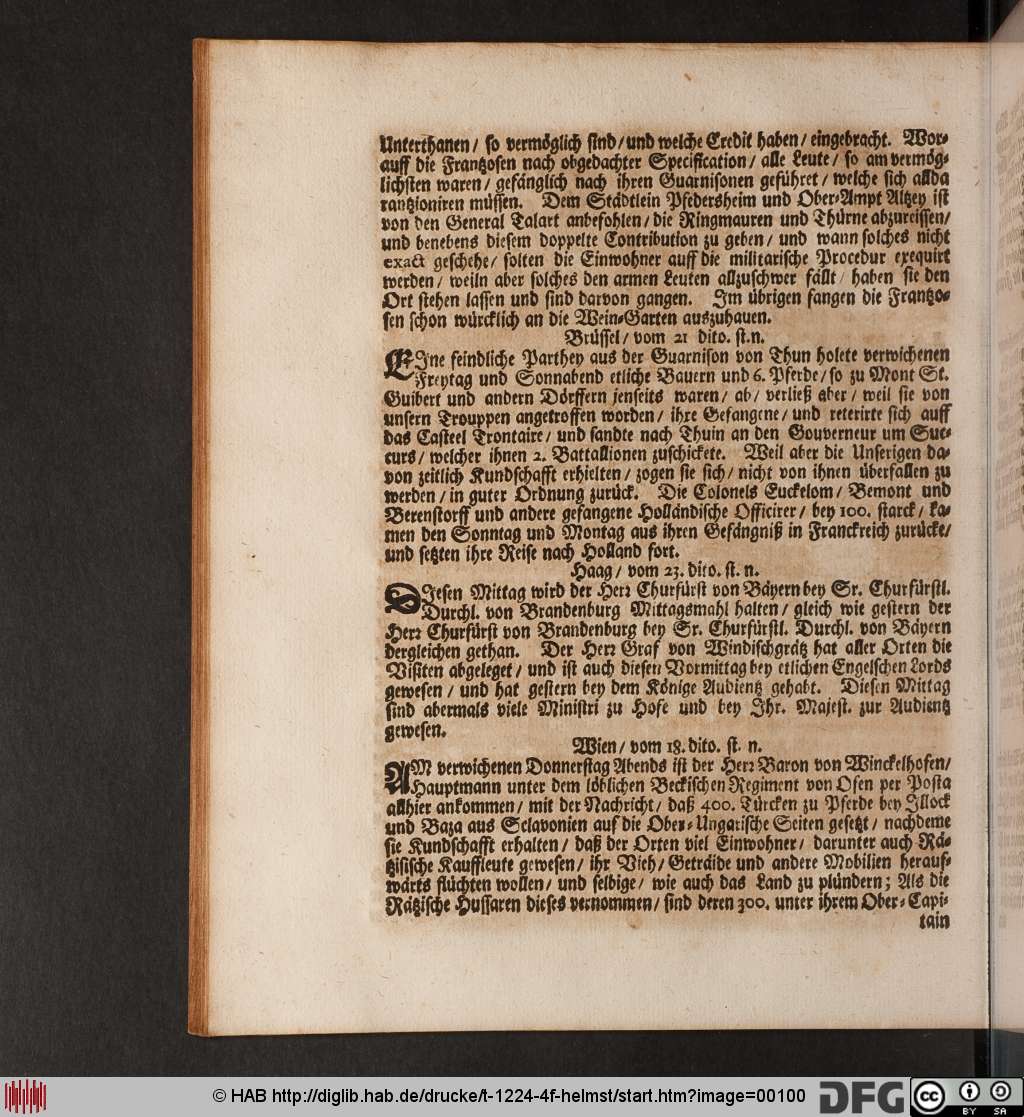 Unterthanen / ſo vermöglich ſind / und welche Credit haben / eingebracht. Wor⸗
auff die Frantzoſen nach obgedachter Specification / alle Leute / ſo am vermög⸗
lichſten waren / gefänglich nach ihren Guarniſonen geführet / welche ſich allda
rantzioniren müſſen. Dem Städtlein Pfedersheim und Ober⸗Ampt Altzey iſt
von den General Talart anbefohlen / die Ringmauren und Thürne abzureiſſen /
und benebens dieſem doppelte Contribution zu geben / und wann ſolches nicht
exact geſchehe / ſolten die Einwohner auff die militariſche Procedur exequirt
werden / weiln aber ſolches den armen Leuten allzuſchwer fällt / haben ſie den
Ort ſtehen laſſen und ſind darvon gangen. Im übrigen fangen die Frantzo⸗
ſen ſchon würcklich an die Wein⸗Garten auszuhauen.
Brüſſel / vom 21 dito. ſt.n.
EIne feindliche Parthey aus der Guarniſon von Thun holete verwichenen
Freytag und Sonnabend etliche Bauern und 6. Pferde / ſo zu Mont St.
Guibert und andern Dörffern jenſeits waren / ab / verließ aber / weil ſie von
unſern Trouppen angetroffen worden / ihre Gefangene / und reterirte ſich auff
das Caſteel Trontaire / und ſandte nach Thuin an den Gouverneur um Suc⸗
curs / welcher ihnen 2. Battallionen zuſchickete. Weil aber die Unſerigen da⸗
von zeitlich Kundſchafft erhielten / zogen ſie ſich / nicht von ihnen überfallen zu
werden / in guter Ordnung zurück. Die Colonels Euckelom / Bemont und
Berenſtorff und andere gefangene Holländiſche Officirer / bey 100. ſtarck / ka⸗
men den Sonntag und Montag aus ihren Gefängniß in Franckreich zurücke /
und ſetzten ihre Reiſe nach Holland fort.
Haag / vom 23. dito. ſt. n.
DIeſen Mittag wird der Herr Churfürſt von Bäyern bey Sr. Churfürſtl.
Durchl. von Brandenburg Mittagsmahl halten / gleich wie geſtern der
Herr Churfürſt von Brandenburg bey Sr. Churfürſtl. Durchl. von Bäyern
dergleichen gethan. Der Herr Graf von Windiſchgrätz hat aller Orten die
Viſiten abgeleget / und iſt auch dieſen Vormittag bey etlichen Engelſchen Lords
geweſen / und hat geſtern bey dem Könige Audientz gehabt. Dieſen Mittag
ſind abermals viele Miniſtri zu Hofe und bey Ihr. Majeſt. zur Audientz
geweſen.
Wien / vom 18. dito. ſt. n.
AM verwichenen Donnerſtag Abends iſt der Herr Baron von Winckelhofen /
Hauptmann unter dem löblichen Beckiſchen Regiment von Ofen per Poſta
allhier ankommen / mit der Nachricht / daß 400. Türcken zu Pferde bey Illock
und Baza aus Sclavonien auf die Ober⸗Ungariſche Seiten geſetzt / nachdeme
ſie Kundſchafft erhalten / daß der Orten viel Einwohner / darunter auch Rä⸗
tziſche Kauffleute geweſen / ihr Vieh / Geträide und andere Mobilien herauf⸗
wärts flüchten wollen / und ſelbige / wie auch das Land zu plündern; Als die
Rätziſche Huſſaren dieſes vernommen / ſind deren 300. unter ihrem Ober⸗Capi⸗
tain
© HAB http://diglib.hab.de/drucke/t-1224-4f-helmst/start.htm?image=00100
DFG
cc BY SA